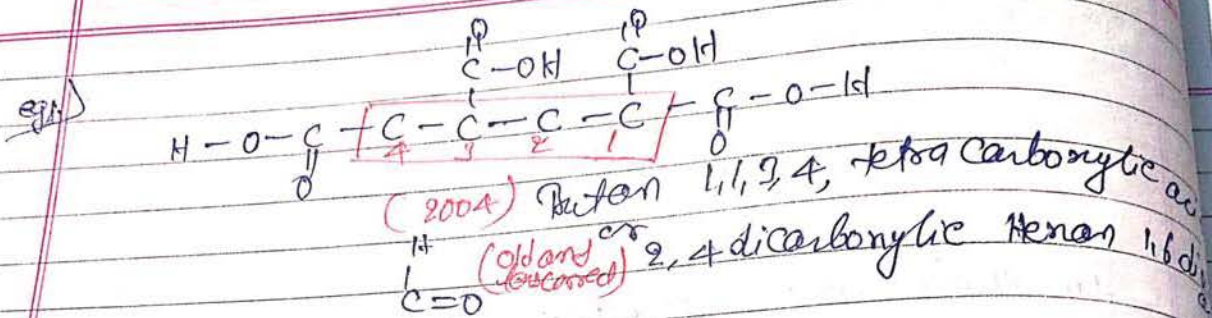 O O
C-OH C-OH
eg.)
H-O-C-C-C-C-C-C-O-H
4 3 2 1
O O
(2004) Butan 1,1,3,4, tetra Carboxylic
or
(old and) 2,4 dicarboxylic Hexan 1,6
H
C=O